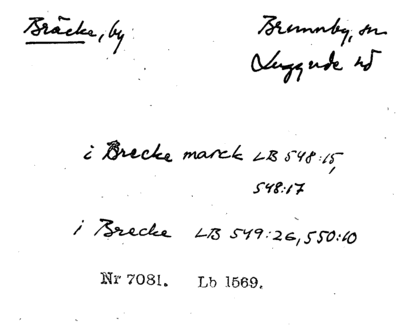 Bräcke, by
Brunnby, sn
Luggude hd
i Brecke marck LB 548:15,
548:17
i Brecke LB 549:26, 550:10
Nr 7081. Lb 1569.